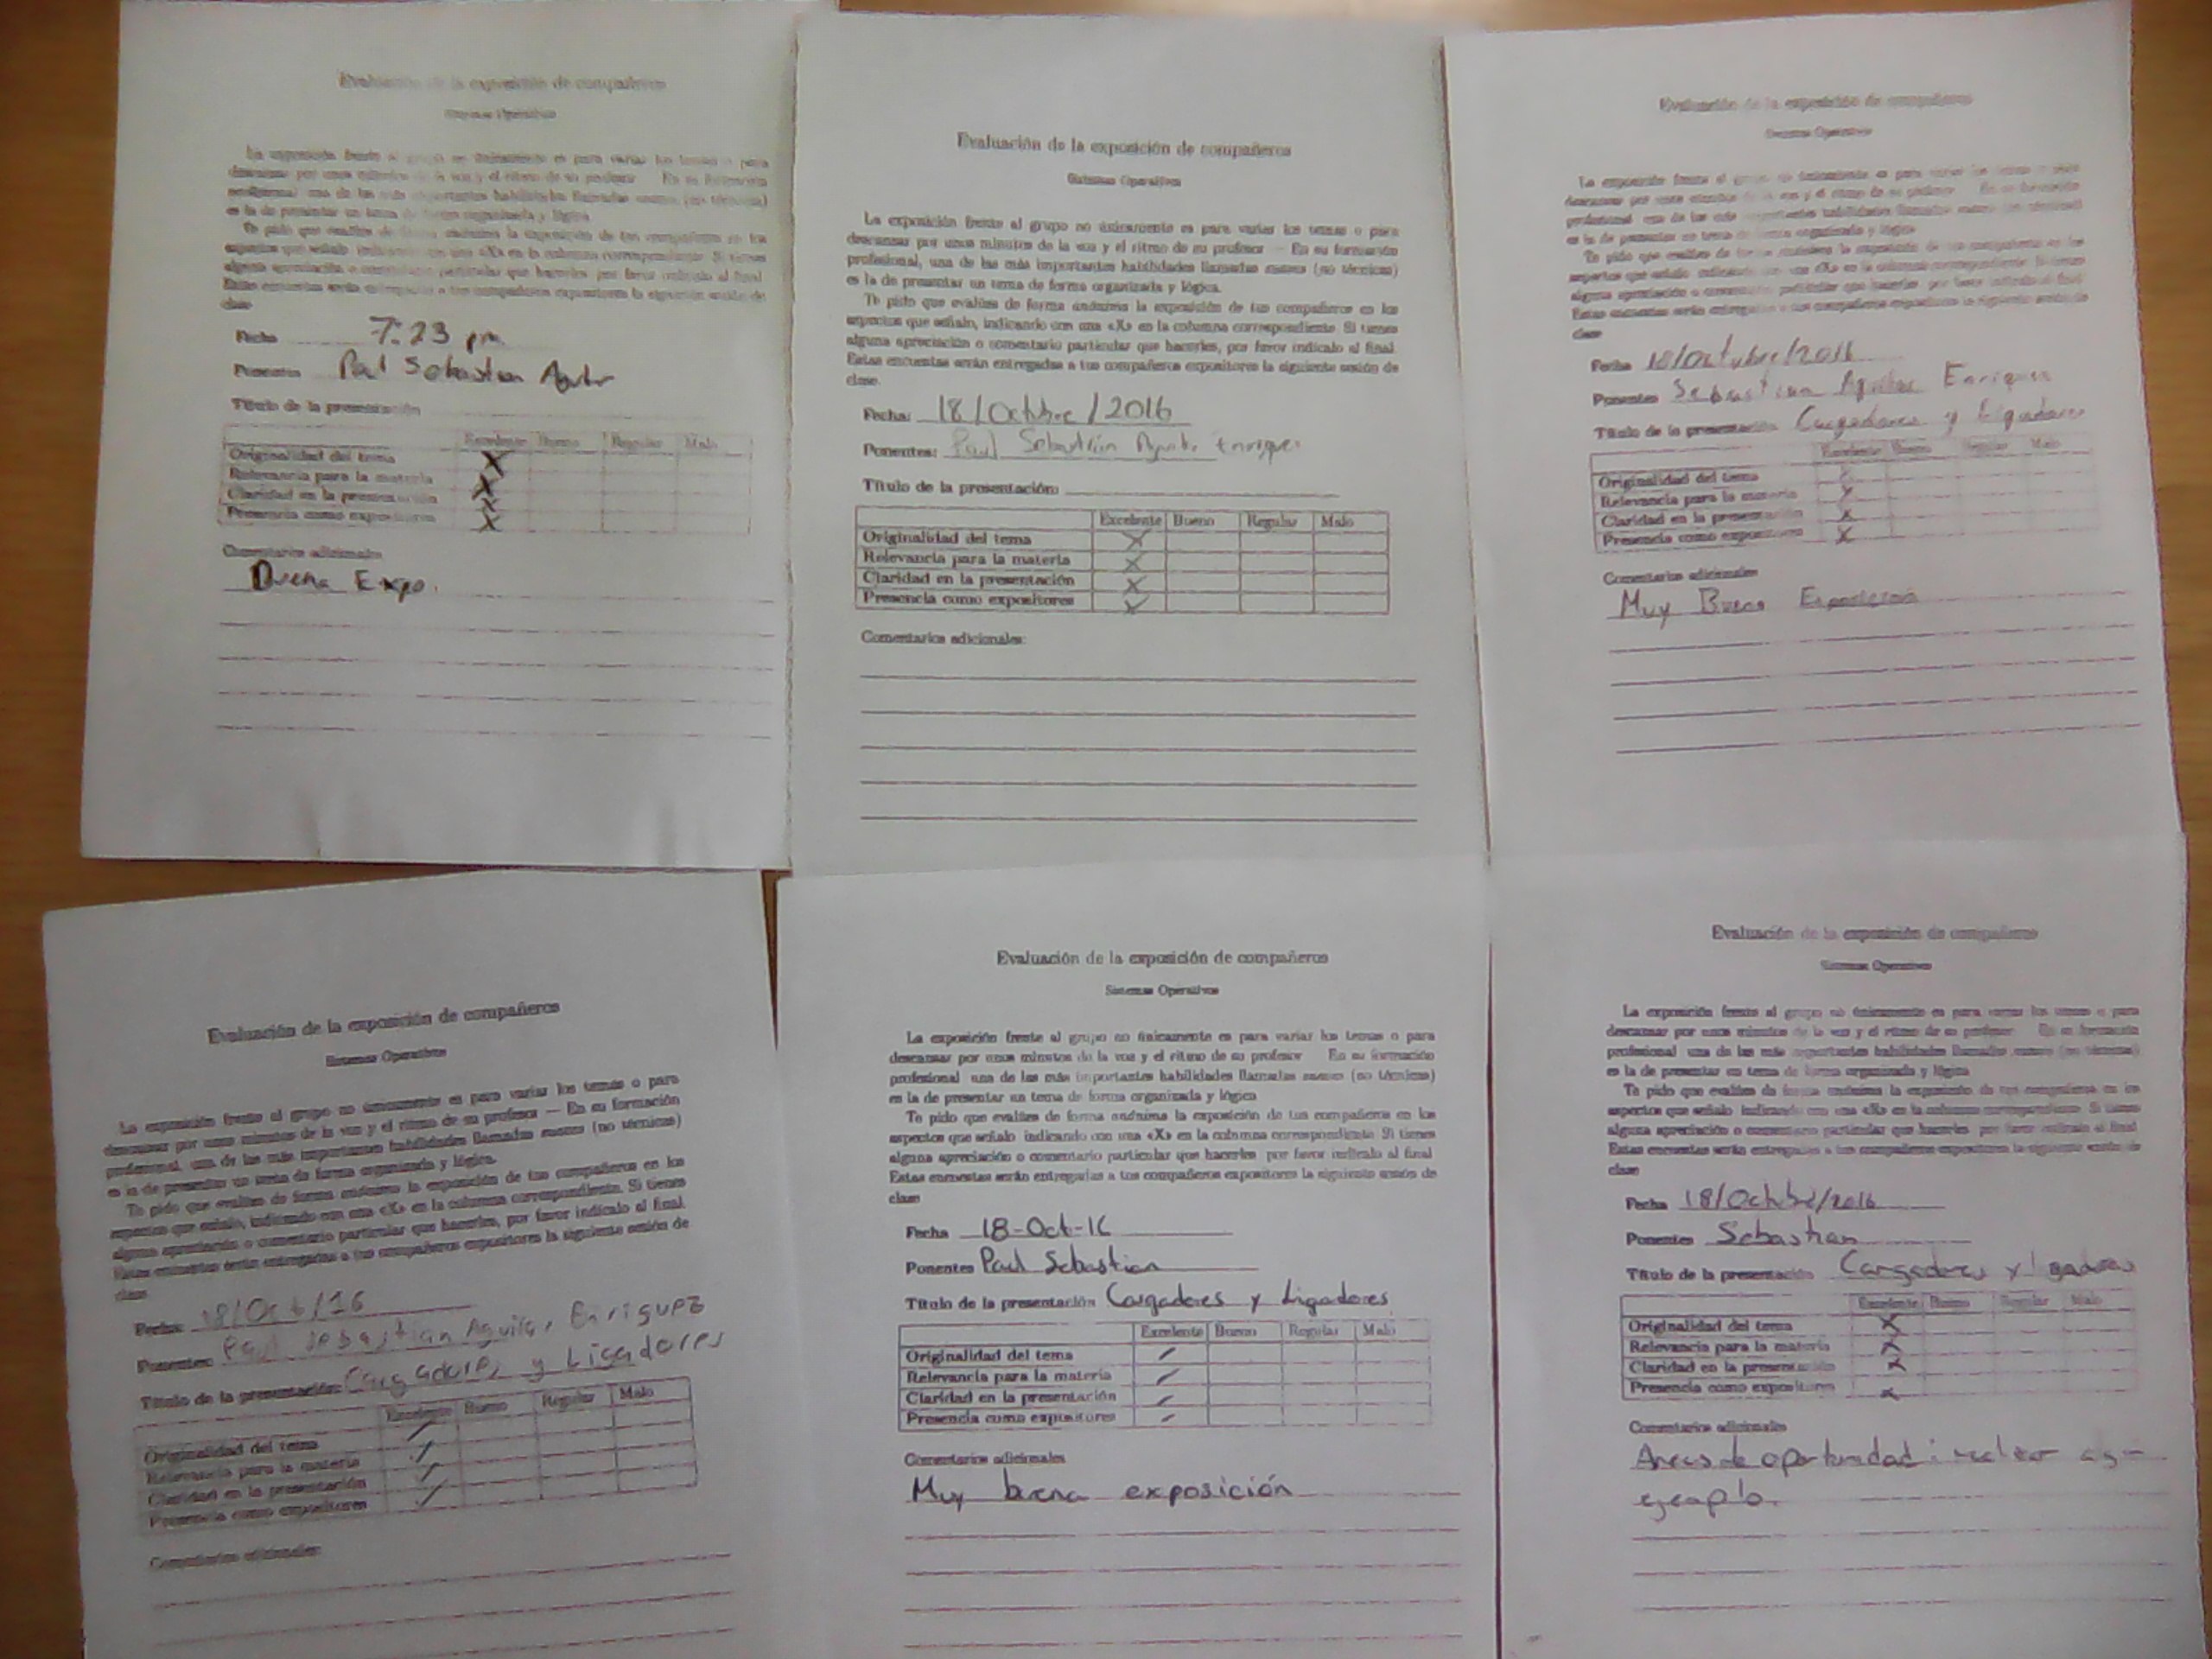 Evaluación de la exposición de compañeros
Sistemas Operativos
La exposición frente al grupo no únicamente es para variar los temas o para
descansar por unos minutos de la voz y el ritmo de su profesor En su formación
profesional una de las más importantes habilidades llamadas suaves (no técnicas)
es la de presentar un tema de forma organizada y lógica
Te pido que evalúes de forma anónima la exposición de tus compañeros en los
aspectos que señalo indicando con una «X» en la columna correspondiente Si tienes
alguna apreciación o comentario particular que hacerles por favor indícalo al final
Estas encuestas serán entregadas a tus compañeros expositores la siguiente sesión de
clase
Fecha 7:23 pm
Ponentes Paul Sebastian Aguilar
Título de la presentación
Excelente Bueno Regular Malo
Originalidad del tema X
Relevancia para la materia X
Claridad en la presentación X
Presencia como expositores X
Comentarios adicionales
Buena Expo.
Evaluación de la exposición de compañeros
Sistemas Operativos
La exposición frente al grupo no únicamente es para variar los temas o para
descansar por unos minutos de la voz y el ritmo de su profesor — En su formación
profesional, una de las más importantes habilidades llamadas suaves (no técnicas)
es la de presentar un tema de forma organizada y lógica.
Te pido que evalúes de forma anónima la exposición de tus compañeros en los
aspectos que señalo, indicando con una «X» en la columna correspondiente. Si tienes
alguna apreciación o comentario particular que hacerles, por favor indícalo al final.
Estas encuestas serán entregadas a tus compañeros expositores la siguiente sesión de
clase.
Fecha: 18/Octubre/2016
Ponentes: Paul Sebastián Aguilar Enriquez
Título de la presentación:
Excelente Bueno Regular Malo
Originalidad del tema X
Relevancia para la materia X
Claridad en la presentación X
Presencia como expositores X
Comentarios adicionales:
Evaluación de la exposición de compañeros
Sistemas Operativos
La exposición frente al grupo no únicamente es para variar los temas o para
descansar por unos minutos de la voz y el ritmo de su profesor En su formación
profesional una de las más importantes habilidades llamadas suaves (no técnicas)
es la de presentar un tema de forma organizada y lógica
Te pido que evalúes de forma anónima la exposición de tus compañeros en los
aspectos que señalo indicando con una «X» en la columna correspondiente Si tienes
alguna apreciación o comentario particular que hacerles por favor indícalo al final
Estas encuestas serán entregadas a tus compañeros expositores la siguiente sesión de
clase
Fecha 18/Octubre/2016
Ponentes Sebastian Aguilar Enriquez
Título de la presentación Cargadores y Ligadores
Excelente Bueno Regular Malo
Originalidad del tema X
Relevancia para la materia X
Claridad en la presentación X
Presencia como expositores X
Comentarios adicionales
Muy Buena Exposición
Evaluación de la exposición de compañeros
Sistemas Operativos
La exposición frente al grupo no únicamente es para variar los temas o para
descansar por unos minutos de la voz y el ritmo de su profesor — En su formación
profesional, una de las más importantes habilidades llamadas suaves (no técnicas)
es la de presentar un tema de forma organizada y lógica.
Te pido que evalúes de forma anónima la exposición de tus compañeros en los
aspectos que señalo, indicando con una «X» en la columna correspondiente. Si tienes
alguna apreciación o comentario particular que hacerles, por favor indícalo al final.
Estas encuestas serán entregadas a tus compañeros expositores la siguiente sesión de
clase.
Fecha: 18/Oct/16
Ponentes: Paul Sebastian Aguilar Enriquez
Título de la presentación: Cargadores y Ligadores
Excelente Bueno Regular Malo
Originalidad del tema /
Relevancia para la materia /
Claridad en la presentación /
Presencia como expositores /
Comentarios adicionales:
Evaluación de la exposición de compañeros
Sistemas Operativos
La exposición frente al grupo no únicamente es para variar los temas o para
descansar por unos minutos de la voz y el ritmo de su profesor En su formación
profesional una de las más importantes habilidades llamadas suaves (no técnicas)
es la de presentar un tema de forma organizada y lógica
Te pido que evalúes de forma anónima la exposición de tus compañeros en los
aspectos que señalo indicando con una «X» en la columna correspondiente Si tienes
alguna apreciación o comentario particular que hacerles por favor indícalo al final
Estas encuestas serán entregadas a tus compañeros expositores la siguiente sesión de
clase
Fecha 18-Oct-16
Ponentes Paul Sebastian
Título de la presentación Cargadores y Ligadores
Excelente Bueno Regular Malo
Originalidad del tema /
Relevancia para la materia /
Claridad en la presentación /
Presencia como expositores /
Comentarios adicionales
Muy buena exposición
Evaluación de la exposición de compañeros
Sistemas Operativos
La exposición frente al grupo no únicamente es para variar los temas o para
descansar por unos minutos de la voz y el ritmo de su profesor En su formación
profesional una de las más importantes habilidades llamadas suaves (no técnicas)
es la de presentar un tema de forma organizada y lógica
Te pido que evalúes de forma anónima la exposición de tus compañeros en los
aspectos que señalo indicando con una «X» en la columna correspondiente Si tienes
alguna apreciación o comentario particular que hacerles por favor indícalo al final
Estas encuestas serán entregadas a tus compañeros expositores la siguiente sesión de
clase
Fecha 18/Octubre/2016
Ponentes Sebastian
Título de la presentación Cargadores y ligadores
Excelente Bueno Regular Malo
Originalidad del tema X
Relevancia para la materia X
Claridad en la presentación X
Presencia como expositores X
Comentarios adicionales
Areas de oportunidad:
ejemplo.